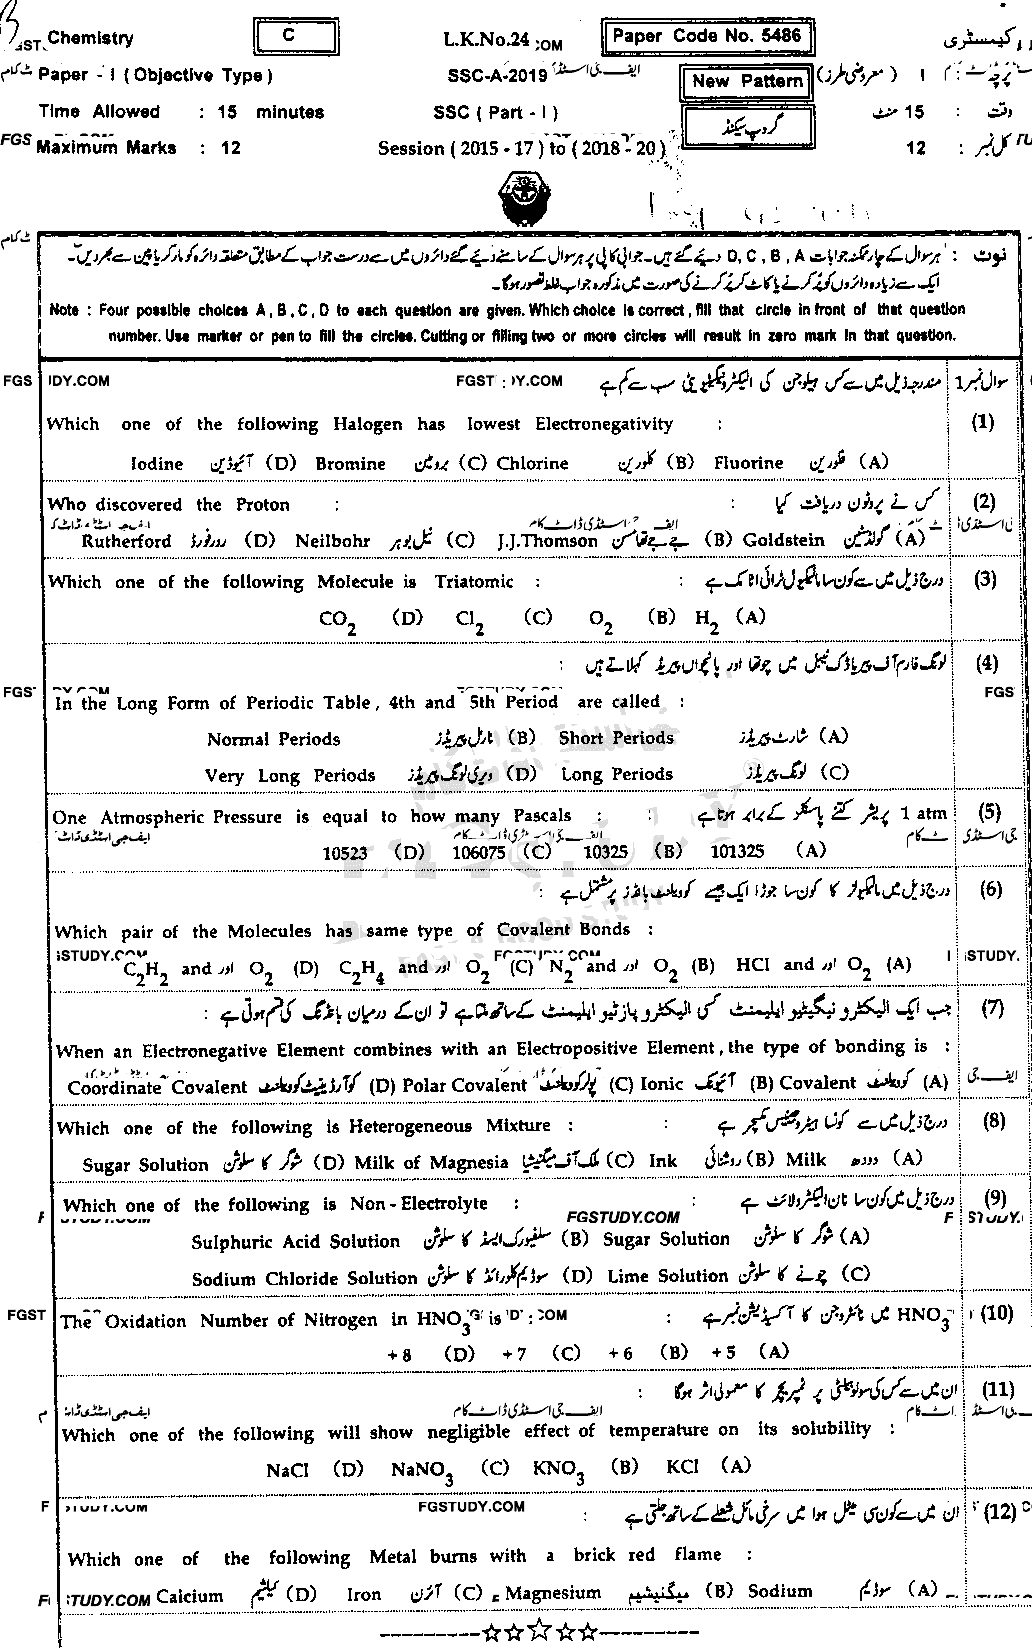 Chemistry C L.K.No.24 Paper Code No. 5486 کیمسٹری
Paper - I ( Objective Type ) SSC-A-2019 New Pattern پرچہ : I ( معروضی طرز )
Time Allowed : 15 minutes SSC ( Part - I ) گروپ سیکنڈ وقت : 15 منٹ
Maximum Marks : 12 Session ( 2015 - 17 ) to ( 2018 - 20 ) کل نمبر : 12
نوٹ : ہر سوال کے چار ممکنہ جوابات D, C, B, A دیئے گئے ہیں۔ جوابی کاپی پر ہر سوال کے سامنے دیئے گئے دائروں میں سے درست جواب کے مطابق متعلقہ دائرہ کو مارکر یا پین سے بھر دیں۔
ایک سے زیادہ دائروں کو پُر کرنے یا کاٹ کر پُر کرنے کی صورت میں مذکورہ جواب غلط تصور ہوگا۔
Note : Four possible choices A, B, C, D to each question are given. Which choice is correct, fill that circle in front of that question
number. Use marker or pen to fill the circles. Cutting or filling two or more circles will result in zero mark in that question.
سوال نمبر 1 مندرجہ ذیل میں سے کس ہیلوجن کی الیکٹرونیگیٹیویٹی سب سے کم ہے
Which one of the following Halogen has lowest Electronegativity : (1)
Iodine آئیوڈین (D) Bromine برومین (C) Chlorine کلورین (B) Fluorine فلورین (A)
کس نے پروٹون دریافت کیا :
Who discovered the Proton : (2)
Rutherford ردرفورڈ (D) Neilbohr نیل بوہر (C) J.J.Thomson جے جے تھامسن (B) Goldstein گولڈسٹین (A)
درج ذیل میں سے کون سا مالیکیول ٹرائی اٹامک ہے :
Which one of the following Molecule is Triatomic : (3)
CO₂ (D) Cl₂ (C) O₂ (B) H₂ (A)
لونگ فارم آف پیریاڈک ٹیبل میں چوتھا اور پانچواں پیریڈ کہلاتے ہیں : (4)
In the Long Form of Periodic Table, 4th and 5th Period are called :
Normal Periods نارمل پیریڈز (B) Short Periods شارٹ پیریڈز (A)
Very Long Periods ویری لونگ پیریڈز (D) Long Periods لونگ پیریڈز (C)
1 atm پریشر کتنے پاسکلز کے برابر ہوتا ہے :
One Atmospheric Pressure is equal to how many Pascals : (5)
10523 (D) 106075 (C) 10325 (B) 101325 (A)
درج ذیل میں مالیکیولز کا کون سا جوڑا ایک جیسے کوویلنٹ بانڈز پر مشتمل ہے : (6)
Which pair of the Molecules has same type of Covalent Bonds :
C₂H₂ and اور O₂ (D) C₂H₄ and اور O₂ (C) N₂ and اور O₂ (B) HCl and اور O₂ (A)
جب ایک الیکٹرو نیگیٹیو ایلیمنٹ کسی الیکٹرو پازیٹیو ایلیمنٹ کے ساتھ ملتا ہے تو ان کے درمیان بانڈنگ کی قسم ہوتی ہے : (7)
When an Electronegative Element combines with an Electropositive Element, the type of bonding is :
Coordinate Covalent کوآرڈینیٹ کوویلنٹ (D) Polar Covalent پولر کوویلنٹ (C) Ionic آئیونک (B) Covalent کوویلنٹ (A)
درج ذیل میں سے کونسا ہیٹروجینیس مکسچر ہے :
Which one of the following is Heterogeneous Mixture : (8)
Sugar Solution شوگر کا سلوشن (D) Milk of Magnesia ملک آف میگنیشیا (C) Ink روشنائی (B) Milk دودھ (A)
درج ذیل میں کون سا نان الیکٹرولائٹ ہے :
Which one of the following is Non-Electrolyte : (9)
Sulphuric Acid Solution سلفیورک ایسڈ کا سلوشن (B) Sugar Solution شوگر کا سلوشن (A)
Sodium Chloride Solution سوڈیم کلورائڈ کا سلوشن (D) Lime Solution چونے کا سلوشن (C)
HNO₃ میں نائٹروجن کا آکسیڈیشن نمبر ہے :
The Oxidation Number of Nitrogen in HNO₃ is : (10)
+8 (D) +7 (C) +6 (B) +5 (A)
ان میں سے کس کی سولیوبلٹی پر ٹمپریچر کا معمولی اثر ہوگا : (11)
Which one of the following will show negligible effect of temperature on its solubility :
NaCl (D) NaNO₃ (C) KNO₃ (B) KCl (A)
FGSTUDY.COM
ان میں سے کون سی میٹل ہوا میں سرخی مائل شعلے کے ساتھ جلتی ہے : (12)
Which one of the following Metal burns with a brick red flame :
Calcium کیلشیم (D) Iron آئرن (C) Magnesium میگنیشیم (B) Sodium سوڈیم (A)